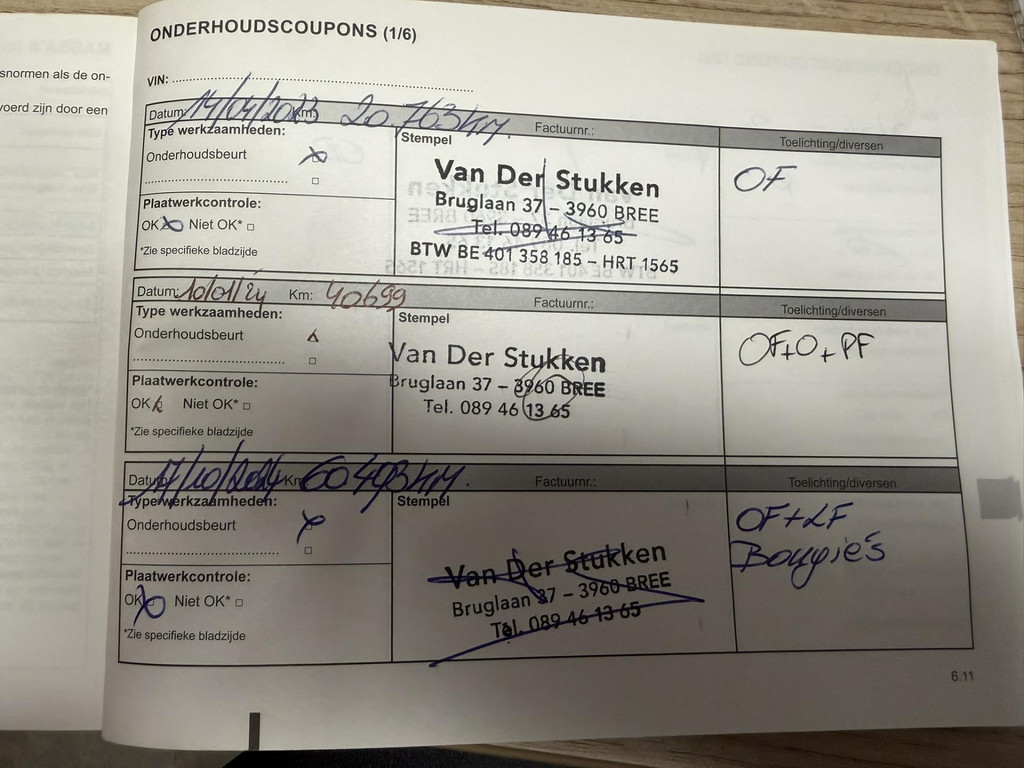 snormen als de on-
voerd zijn door een
ONDERHOUDSCOUPONS (1/6)
VIN:
Datum: 14/04/2023 Km: 20.763 KM. Factuurnr.: Toelichting/diversen
Type werkzaamheden:
Onderhoudsbeurt
Plaatwerkcontrole:
OK Niet OK*
*Zie specifieke bladzijde
Stempel
Van Der Stukken
Bruglaan 37 – 3960 BREE
Tel. 089 46 13 65
BTW BE 401 358 185 – HRT 1565
OF
Datum: 10/01/24 Km: 40699 Factuurnr.: Toelichting/diversen
Type werkzaamheden:
Onderhoudsbeurt
Plaatwerkcontrole:
OK Niet OK*
*Zie specifieke bladzijde
Stempel
Van Der Stukken
Bruglaan 37 – 3960 BREE
Tel. 089 46 13 65
OF+O+PF
Datum: 17/10/2024 Km: 60493 KM. Factuurnr.: Toelichting/diversen
Type werkzaamheden:
Onderhoudsbeurt
Plaatwerkcontrole:
OK Niet OK*
*Zie specifieke bladzijde
Stempel
Van Der Stukken
Bruglaan 37 – 3960 BREE
Tel. 089 46 13 65
OF+LF
Bougie's
6.11